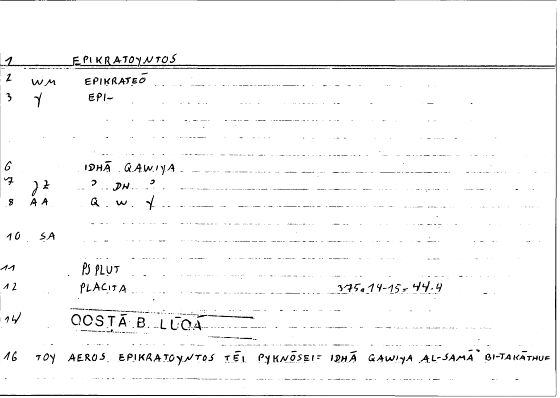 1 EPIKRATOYNTOS
2 WM EPIKRATEŌ
3 Y EPI-
6 IDHĀ QAWIYA
7 JZ ʾ DH ʾ
8 AA Q W Y
10 SA
11 PS PLUT
12 PLACITA 375a14-15= 44.4
14 QOSTĀ B. LŪQĀ
16 TOY AEROS EPIKRATOYNTOS TĒI PYKNŌSEI= IDHĀ QAWIYA AL-SAMĀʾ BI-TAKĀTHUF